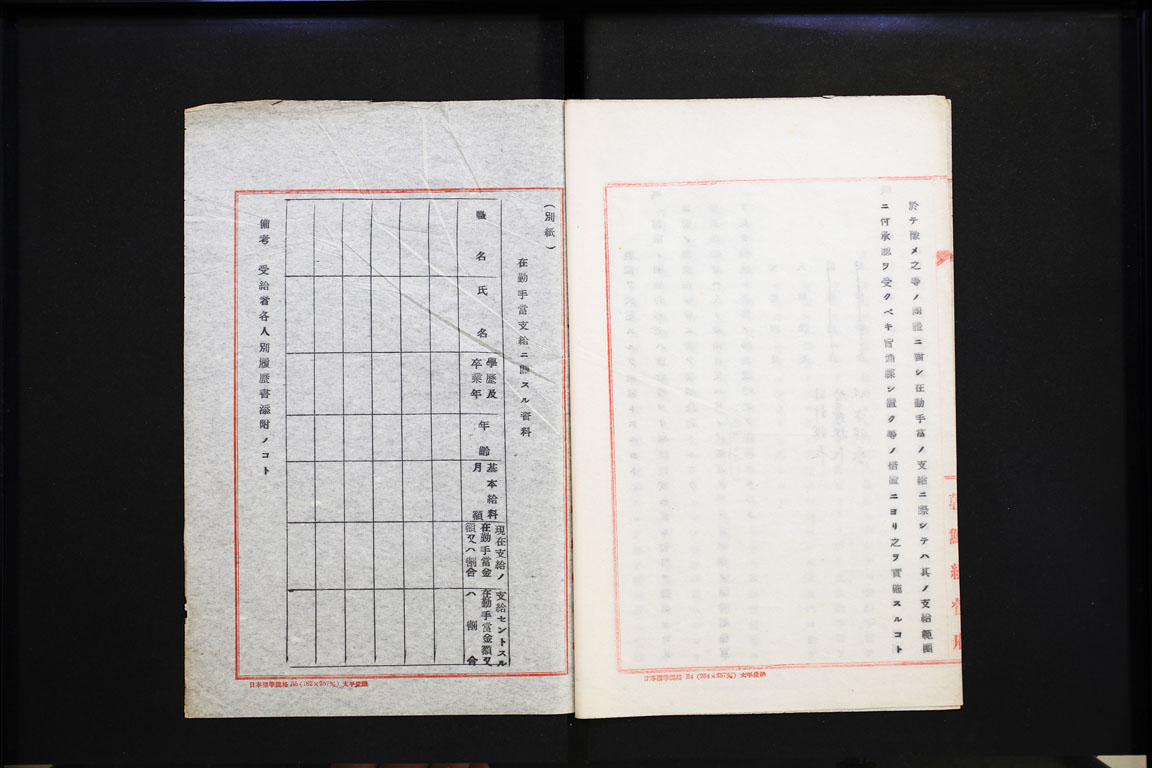 於テ豫メ之等ノ團體ニ對シ在勤手當ノ支給ニ際シテハ其ノ支給範圍
ニ付承認ヲ受クベキ旨通牒シ置ク等ノ措置ニヨリ之ヲ實施スルコト
朝鮮總督府
(別紙)
在勤手當支給ニ關スル資料
職名
氏名
學歷及
卒業年
年齡
基本給料
月額
現在支給ノ
在勤手當金
額又ハ割合
支給セントスル
在勤手當金額又
ハ割合
備考 受給者各人別履歷書添附ノコト
日本標準規格 B5 (182×257㎜)
日本標準規格 B4 (264×257㎜)